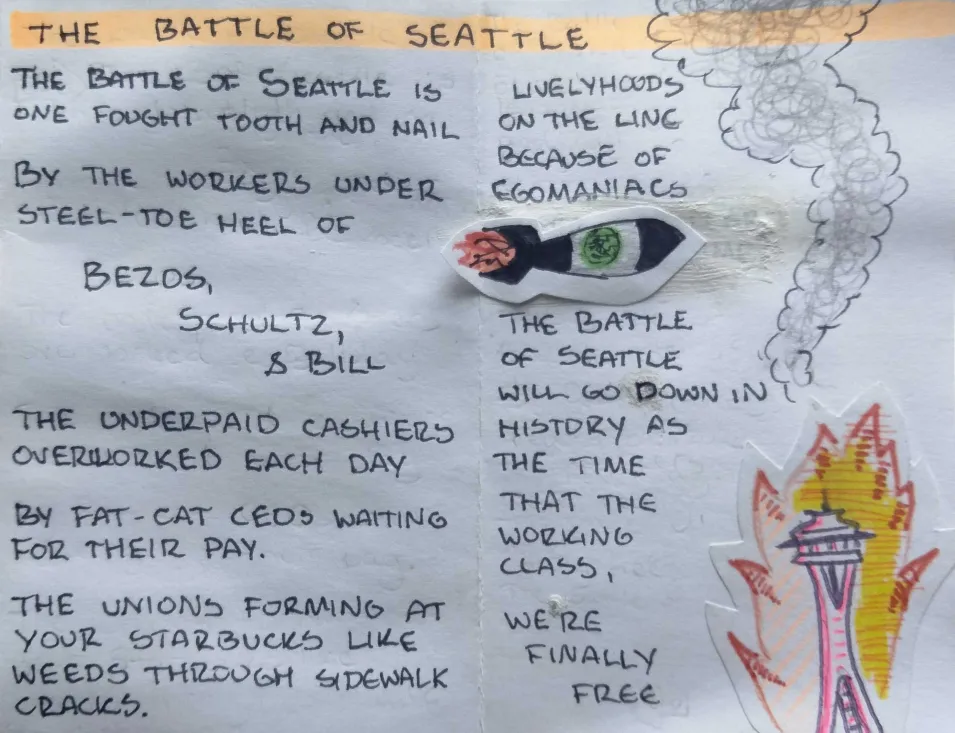 THE BATTLE OF SEATTLE
THE BATTLE OF SEATTLE IS
ONE FOUGHT TOOTH AND NAIL
BY THE WORKERS UNDER
STEEL-TOE HEEL OF
BEZOS,
SCHULTZ,
& BILL
THE UNDERPAID CASHIERS
OVERWORKED EACH DAY
BY FAT-CAT CEOS WAITING
FOR THEIR PAY.
THE UNIONS FORMING AT
YOUR STARBUCKS LIKE
WEEDS THROUGH SIDEWALK
CRACKS.
LIVELYHOODS
ON THE LINE
BECAUSE OF
EGOMANIACS
THE BATTLE
OF SEATTLE
WILL GO DOWN IN
HISTORY AS
THE TIME
THAT THE
WORKING
CLASS,
WE'RE
FINALLY
FREE